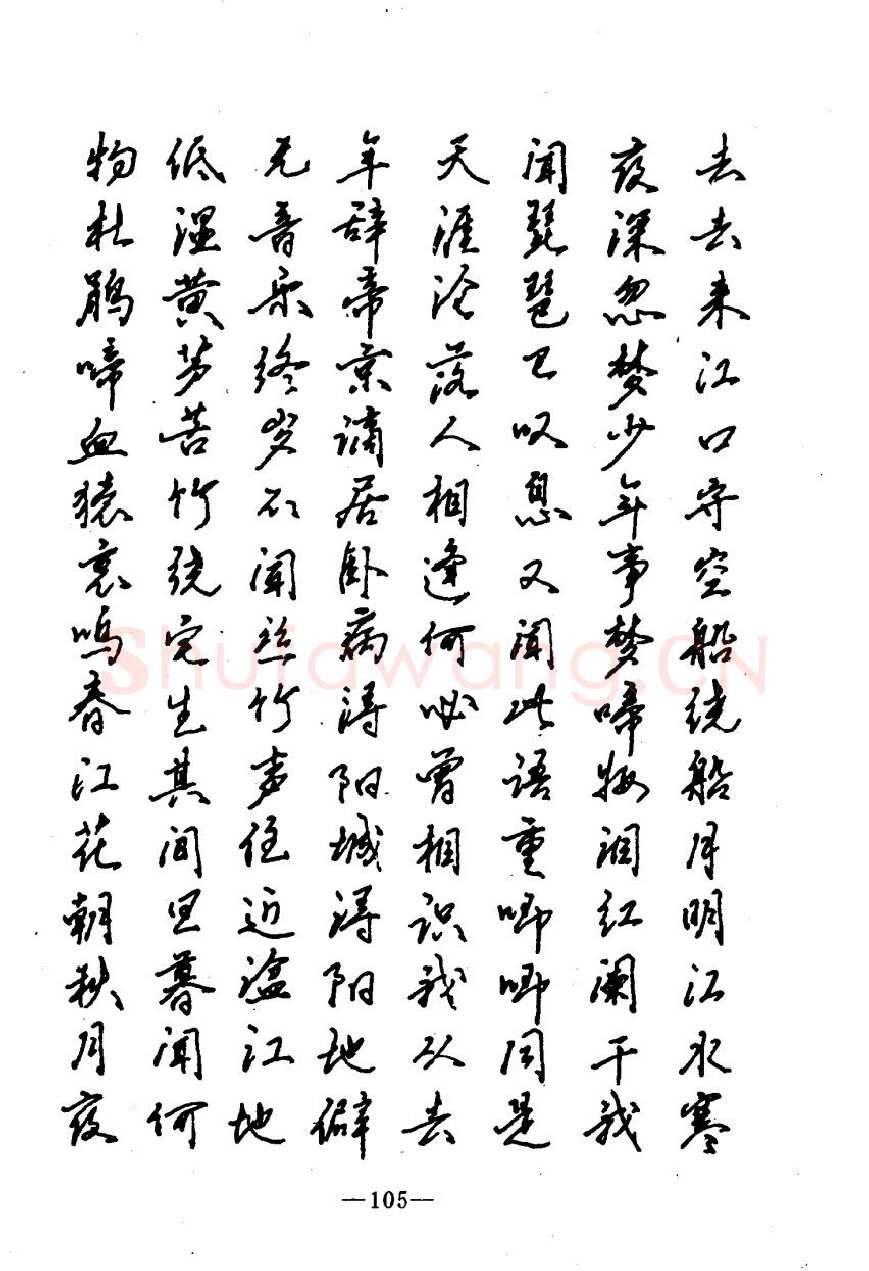 去去来江口守空船绕船月明江水寒
夜深忽梦少年事梦啼妆泪红阑干我
闻琵琶已叹息又闻此语重唧唧同是
天涯沦落人相逢何必曾相识我从去
年辞帝京谪居卧病浔阳城浔阳地僻
无音乐终岁不闻丝竹声住近湓江地
低湿黄芦苦竹绕宅生其间旦暮闻何
物杜鹃啼血猿哀鸣春江花朝秋月夜
Shufawang.CN
—105—